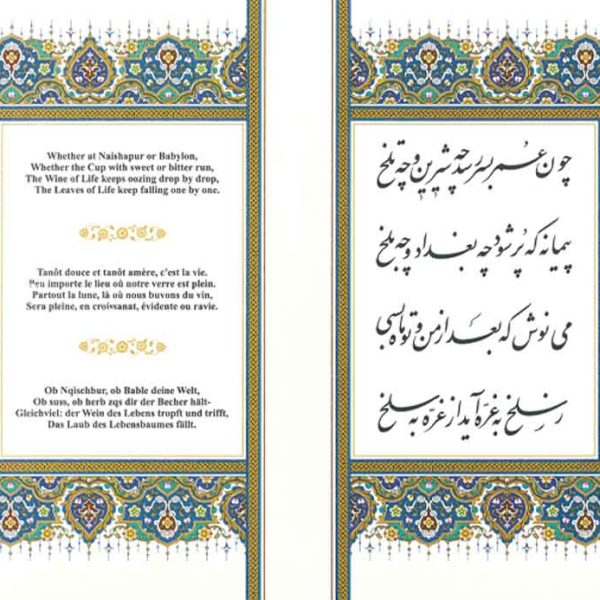 Whether at Naishapur or Babylon,
Whether the Cup with sweet or bitter run,
The Wine of Life keeps oozing drop by drop,
The Leaves of Life keep falling one by one.
Tanôt douce et tanôt amère, c'est la vie.
Peu importe le lieu où notre verre est plein.
Partout la lune, là où nous buvons du vin,
Sera pleine, en croissanat, évidente ou ravie.
Ob Nqischbur, ob Bable deine Welt,
Ob suss, ob herb zqs dir der Becher hält-
Gleichviel: der Wein des Lebens tropft und trifft,
Das Laub des Lebensbaumes fällt.
چون عمر بسر رسد چه شیرین و چه تلخ
پیمانه که پُر شود چه بغداد و چه بلخ
می نوش که بعد از من و تو ماه بسی
ز سلخ به غرّه آید از غرّه به سلخ